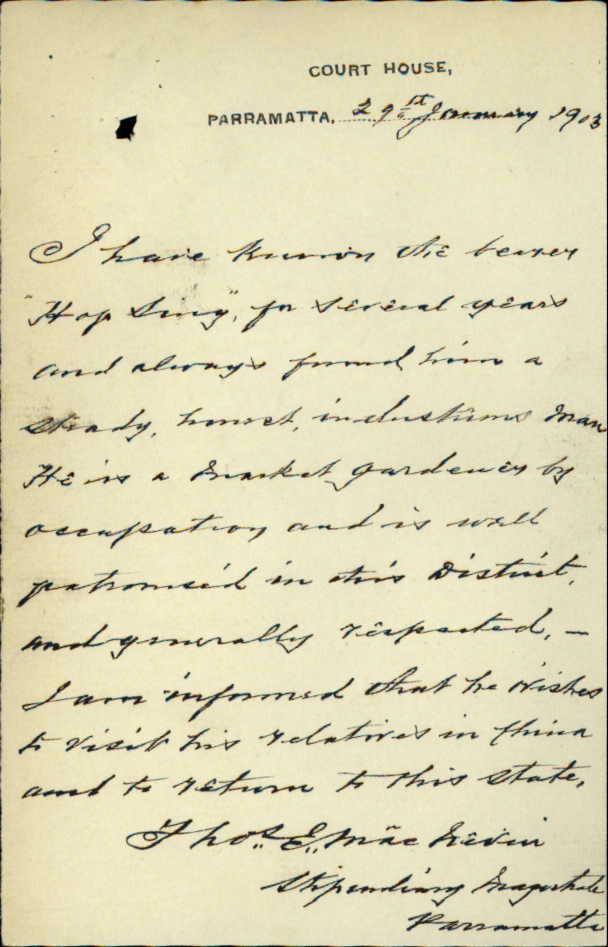 COURT HOUSE,
PARRAMATTA, 29th January 1903
I have known the bearer
"Hop Sing", for several years
and always found him a
steady, honest, industrious man
He is a market gardener by
occupation and is well
patronised in this District,
and generally respected, —
I am informed that he wishes
to visit his relatives in China
and to return to this State,
Thos. E. MacNevin
Stipendiary Magistrate
Parramatta